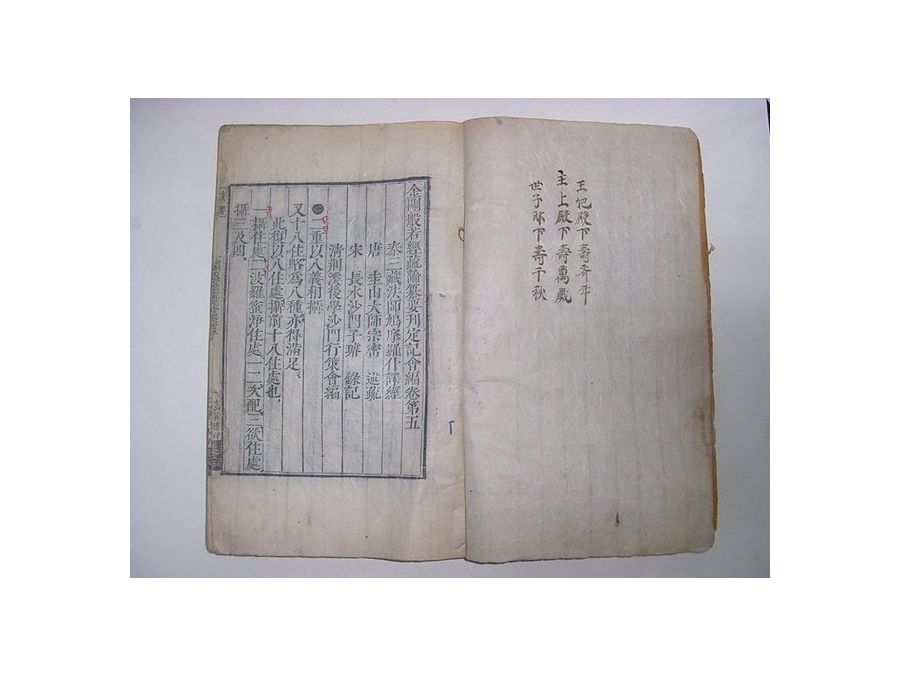 王妃殿下壽齊年
主上殿下壽萬歲
世子邸下壽千秋
金剛般若經疏論纂要刊定記會編卷第五
秦 三藏法師鳩摩羅什譯經
唐 圭山大師宗密 述疏
宋 長水沙門子璿 錄記
清荊溪後學沙門行策會編
二重以八義相攝
又十八住畧爲八種亦得滿足
此復以八住處攝前十八住處也
一攝住處二波羅蜜淨住處一二次配三欲住處
攝三及四